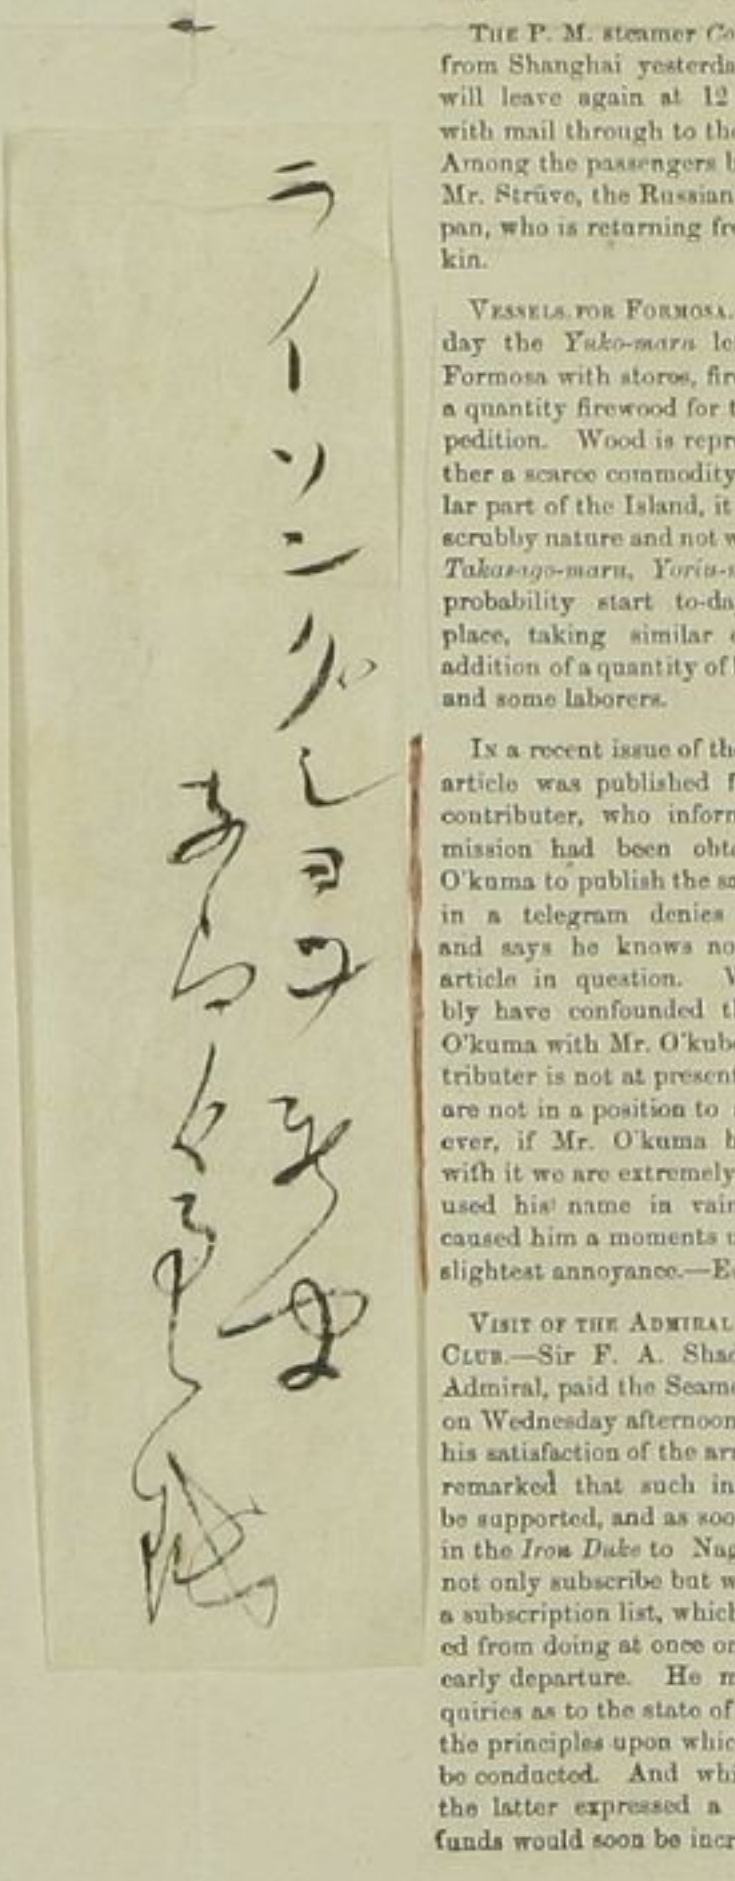 ライーソング
THE P. M. steamer Co
from Shanghai yesterda
will leave again at 12
with mail through to the
Among the passengers b
Mr. Strüve, the Russian
pan, who is returning fr
kin.
VESSELS FOR FORMOSA.
day the Yuko-maru le
Formosa with stores, fir
a quantity firewood for t
pedition. Wood is repr
ther a scarce commodity
lar part of the Island, it
scrubby nature and not w
Takasago-maru, Yoriu-
probability start to-da
place, taking similar
addition of a quantity of
and some laborers.
IN a recent issue of the
article was published f
contributer, who inform
mission had been obta
O'kuma to publish the sa
in a telegram denies
and says he knows no
article in question. W
bly have confounded th
O'kuma with Mr. O'kub
tributer is not at present
are not in a position to
ever, if Mr. O'kuma h
with it we are extremely
used his name in vain
caused him a moments u
slightest annoyance.—E
VISIT OF THE ADMIRAL
CLUB.—Sir F. A. Shad
Admiral, paid the Seame
on Wednesday afternoon
his satisfaction of the arr
remarked that such in
be supported, and as soo
in the Iron Duke to Nag
not only subscribe but w
a subscription list, which
ed from doing at once o
early departure. He m
quiries as to the state of
the principles upon whic
be conducted. And whi
the latter expressed a
funds would soon be incr